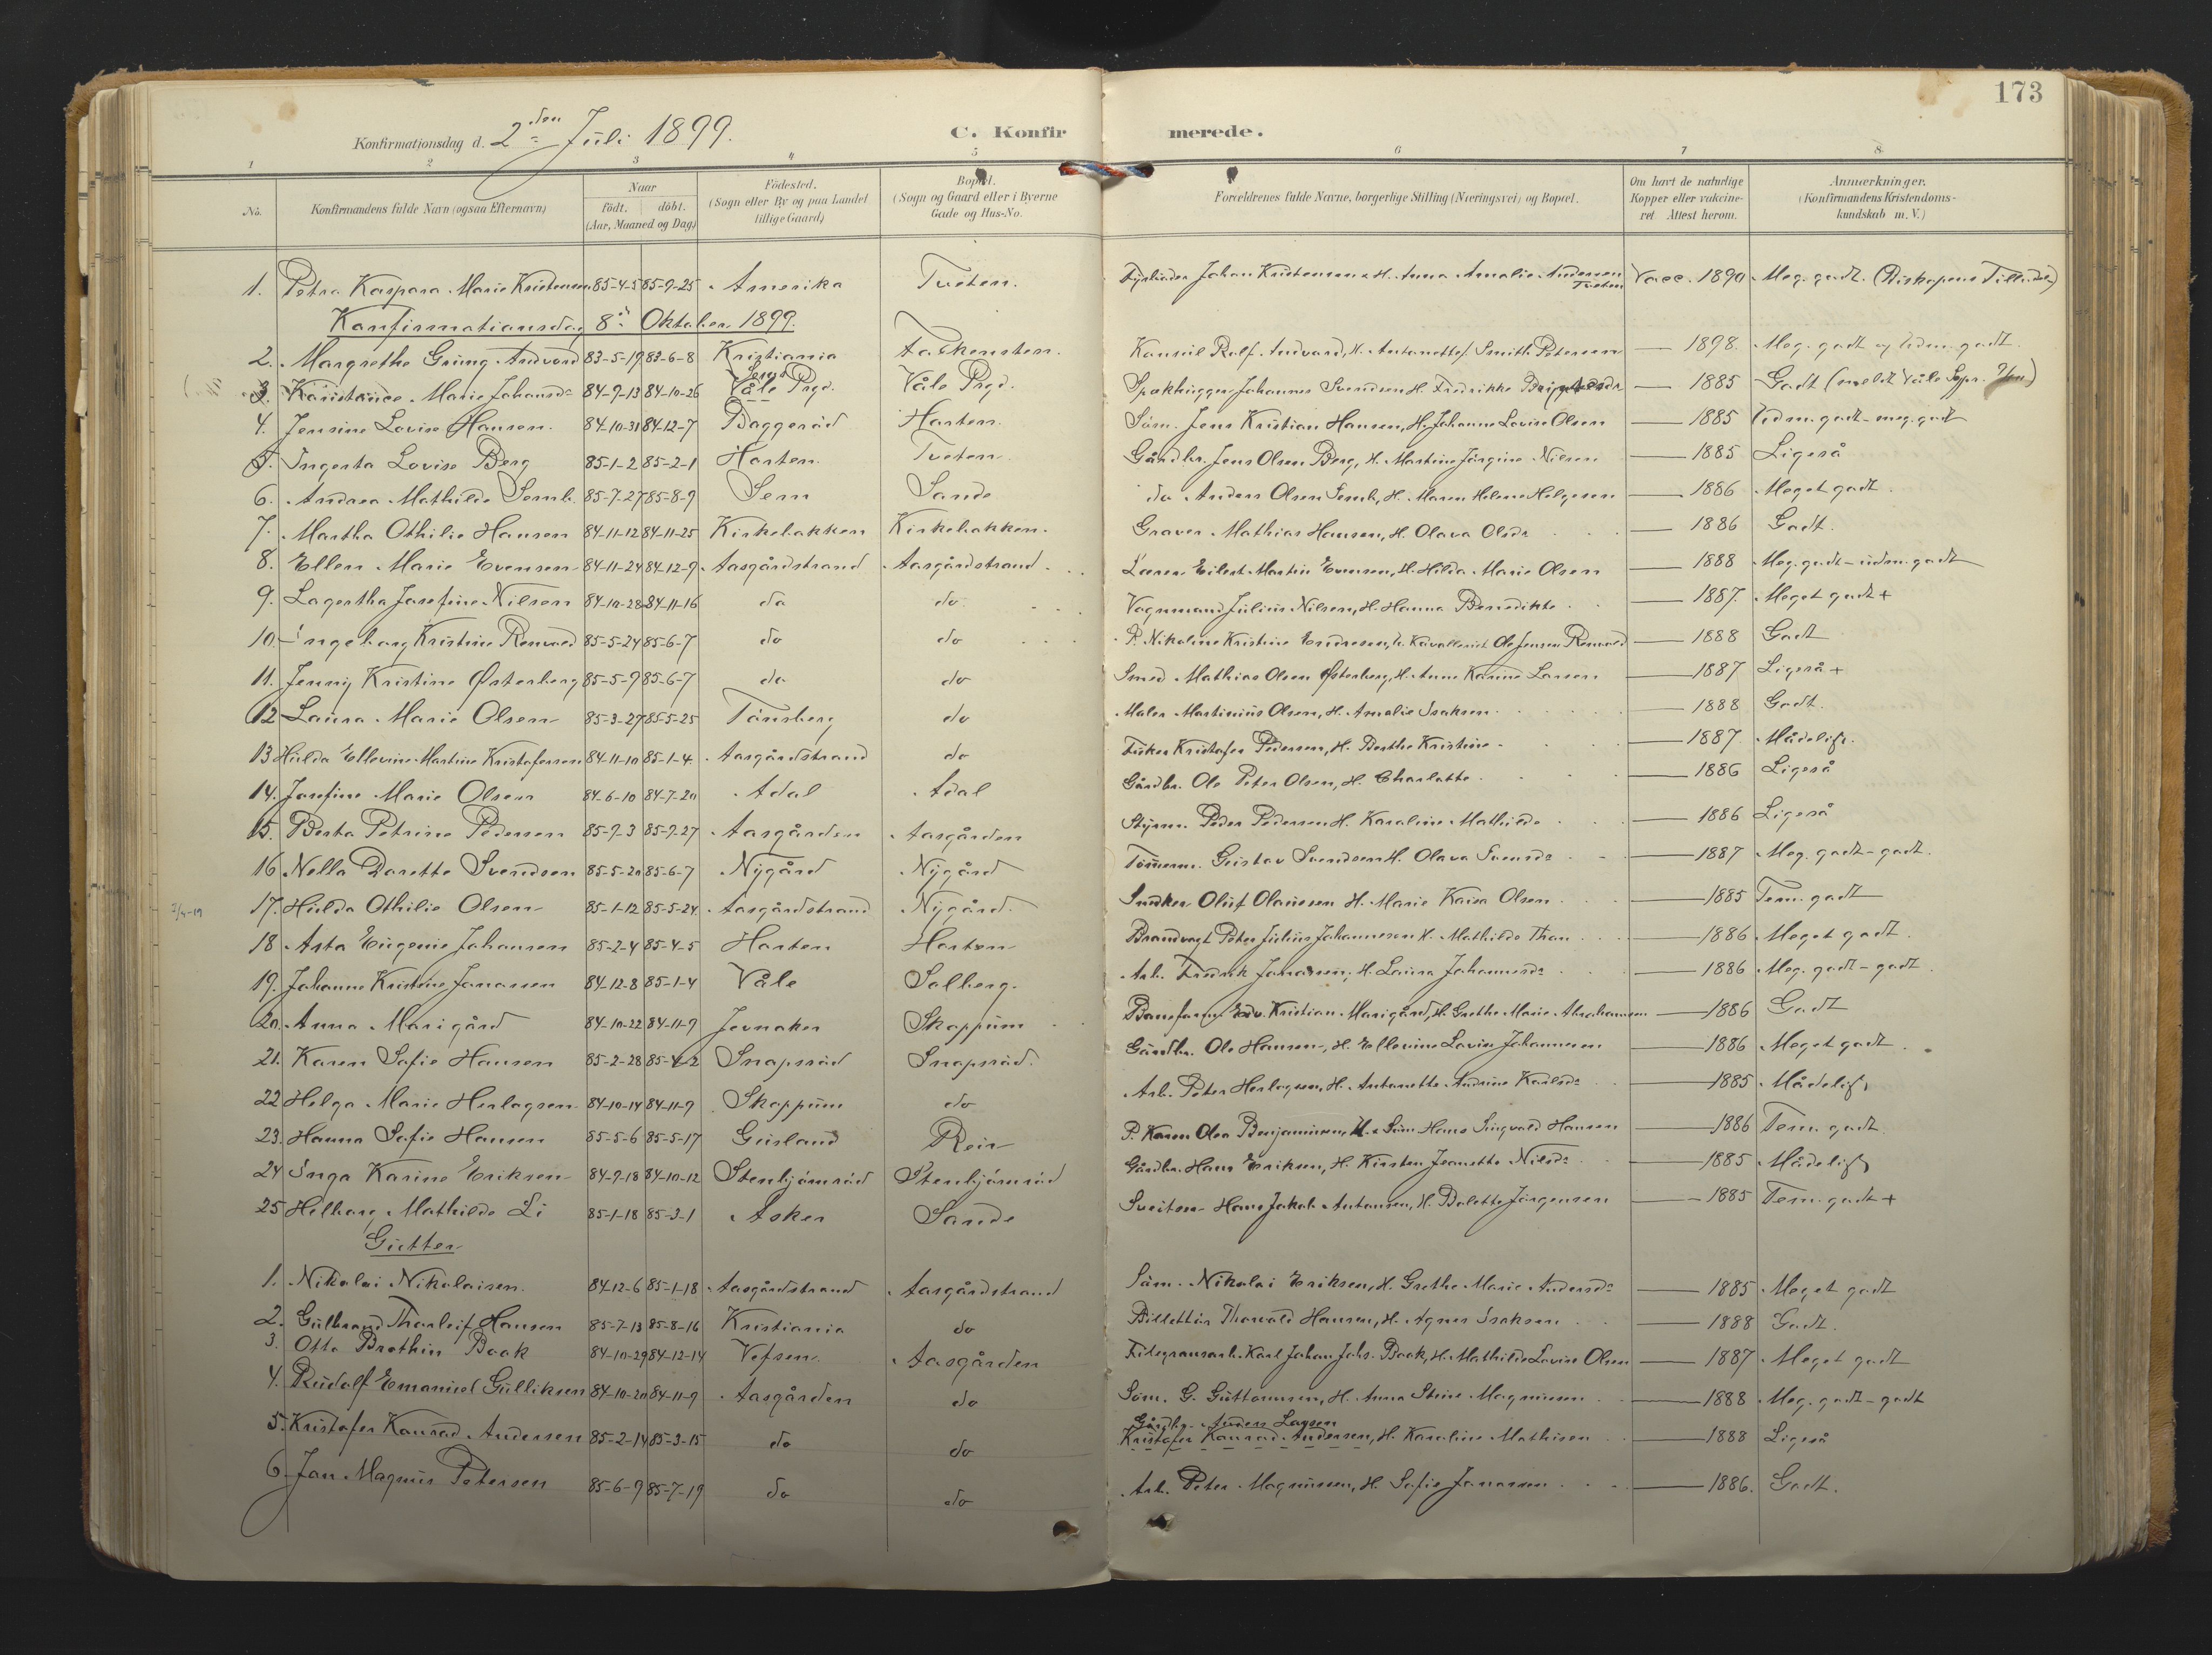 173
Konfirmationsdag d. 2den Juli 1899. C. Konfirmerede.
1 2 3 4 5 6 7 8
No. Konfirmandens fulde Navn (ogsaa Efternavn) Naar født. døbt. (Aar, Maaned og Dag) Födested. (Sogn eller By og paa Landet tillige Gaard) Bopæl. (Sogn og Gaard eller i Byerne Gade og Hus-No. Forældrenes fulde Navne, borgerlige Stilling (Næringsvei) og Bopæl. Om havt de naturlige Kopper eller vakcineret Attest herom. Anmærkninger. (Konfirmandens Kristendomskundskab m. V.)
1. Petra Kaspara Marie Kristensen 85-4-5 85-9-25 Amerika Tveten. Fyrbøder Johan Kristensen & H. Anna Amalie Andersen Tveten Vacc. 1890 Meg. godt. (Biskopens Tilladelse)
Konfirmationsdag 8de Oktober 1899.
2. Margrethe Grüng Andvord 83-5-19 83-6-8 Kristiania Falkensten. Konsul Rolf Andvord, H. Antonette f. Smith Petersen — 1898. Meg. godt og udm. godt.
3. Konstance Marie Johansdr 84-9-13 84-10-26 Våle Prgd. Våle Prgd. Spækhugger Johannes Svendsen H. Fredrikke — 1885 Godt (meldt Våle Sogpr.)
4. Jensine Lovise Hansen. 84-10-31 84-12-7 Baggerød Horten. Søm. Jens Kristian Hansen, H. Johanne Lovise Olsen — 1885 Udm. godt - meg. godt
5. Ingerta Lovise Berg 85-1-2 85-2-1 Horten. Tveten. Gårdbr. Jens Olsen Berg, H. Martine Jørgine Nilsen — 1885 Ligeså
6. Andrea Mathilde Semb. 85-7-27 85-8-9 Sem Sande do Anders Olsen Semb, H. Maren Helene Helgesen — 1886 Meget godt.
7. Martha Othilie Hansen 84-11-12 84-11-25 Kirkebakken Kirkebakken. Graver Mathias Hansen, H. Olava Olsdr — 1886 Godt.
8. Ellen Marie Evensen 84-11-24 84-12-9 Aasgårdstrand Aasgårdstrand Lærer Eilert Martin Evensen, H. Hilda Marie Olsen — 1888 Meg. godt - udm. godt
9. Lagertha Josefine Nilsen 84-10-28 84-11-16 do do Vognmand Julius Nilsen, H. Hanna Benedikte — 1887. Meget godt +
10. Ingeborg Kristine Renvold 85-5-24 85-6-7 do do P. Nikoline Kristine Endresen, U. Kavallerist Ole Jensen Renvold — 1888 Godt
11. Jenny Kristine Østerberg 85-5-9 85-6-7 do do Smed Mathias Olsen Østerberg, H. Anne Karine Larsen — 1887 Ligeså +
12 Laura Marie Olsen 85-3-27 85-5-25 Tönsberg do Maler Martinius Olsen, H. Amalie Isaksen — 1888 Godt.
13 Hilda Ellevine Martine Kristofersen 84-11-10 85-1-4. Aasgårdstrand do Fisker Kristofer Pedersen, H. Berthe Kristine — 1887 Mådelig.
14. Josefine Marie Olsen 84-6-10 84-7-20 Adal Adal Gårdbr. Ole Peter Olsen, H. Charlotte — 1886 Ligeså
15. Berta Petrine Pedersen 85-7-3 85-9-27 Aasgården Aasgården Styrm. Peder Pedersen H. Karoline Mathilde — 1886 Ligeså
16 Nella Dorette Svendsen 85-5-20 85-6-7 Nygård Nygård Tömmerm. Gustav Svendsen H. Olava Svensdr — 1887 Meg. godt - godt.
2/4-19 17. Hilda Othilie Olsen 85-1-12 85-5-24. Aasgårdstrand Nygård. Snedker Oluf Olaussen H. Marie Kaisa Olsen — 1885 Tem. godt
18 Asta Eugenie Johansen 85-2-4 85-4-5 Horten Horten Brandvagt Peter Julius Johannesen H. Mathilde Thon — 1886 Meget godt.
19. Johanne Kristine Jonassen 84-12-8 85-1-4 Våle Solberg. Arb. Fredrik Jonassen, H. Laura Johannesdr — 1886 Meg. godt - godt.
20. Anna Marigård 84-10-22 84-11-9 Jevnaker Skoppum Baneform. Edv. Kristian Marigård, H. Grethe Marie Abrahamsen — 1886 Godt
21. Karen Sofie Hansen 85-2-28 85-4-2 Snapsrød Snapsrød. Gårdbr. Ole Hansen, H. Ellevine Lovise Johannesen — 1886 Meget godt.
22 Helga Marie Herlagsen 84-10-14 84-11-9 Skoppum do Arb. Peter Herlagsen, H. Antonette Andrine Karlsdr — 1885 Mådelig
23. Hanna Sofie Hansen 85-5-6 85-5-17 Gusland Rein P. Karen Olea Benjaminsen, U. Søm Hans Singvald Hansen — 1886 Tem. godt.
24 Inga Karine Eriksen 84-9-18 84-10-12 Stenbjørnrød Stenbjørnrød Gårdbr. Hans Eriksen, H. Kirsten Jeanette Nilsdr — 1885 Mådelig
25 Helborg Mathilde Li 85-1-18 85-3-1 Asker Sande Sveitser Hans Jakob Antonsen, H. Bolette Jørgensen — 1885 Tem. godt +
Gutter
1. Nikolai Nikolaisen. 84-12-6 85-1-18 Aasgårdstrand Aasgårdstrand Søm. Nikolai Eriksen, H. Grethe Marie Andersdr — 1885 Meget godt
2. Gulbrand Thorleif Hansen 85-7-13 85-8-16 Kristiania do Billettør Thorvald Hansen, H. Agnes Isaksen — 1888 Godt.
3. Otto Brothin Book 84-10-29 84-12-14 Vefsen. Aasgården Filegransarb. Karl Johan Johs. Book, H. Mathilde Lovise Olsen — 1887 Meget godt
4. Rudolf Emanuel Gulliksen 84-10-20 84-11-9 Aasgården do Søm. G. Guttormsen, H. Anna Stine Magnussen — 1888 Meg. godt - godt
Gårdbr. Anders Larsen
5. Kristofer Konrad Andersen 85-2-14 85-3-15 do do Kristofer Konrad Andersen, H. Karoline Mathisen — 1888 Ligeså
6. Jon Magnus Petersen 85-6-9 85-7-19 do do Arb. Peter Magnussen, H. Sofie Jonassen — 1886. Godt.